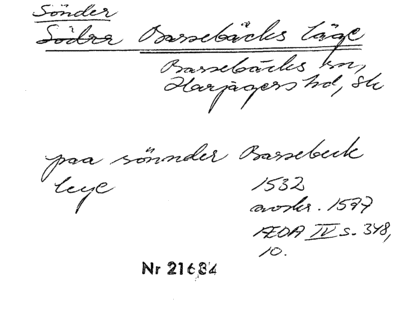 Sönder
Södra Barsebäcks läge
Barsebäcks sn,
Harjagers hd, Sk
paa sönnder Barsebeck
leye 1532
avskr. 1597
ÆDA IV s. 348,
10.
Nr 21684